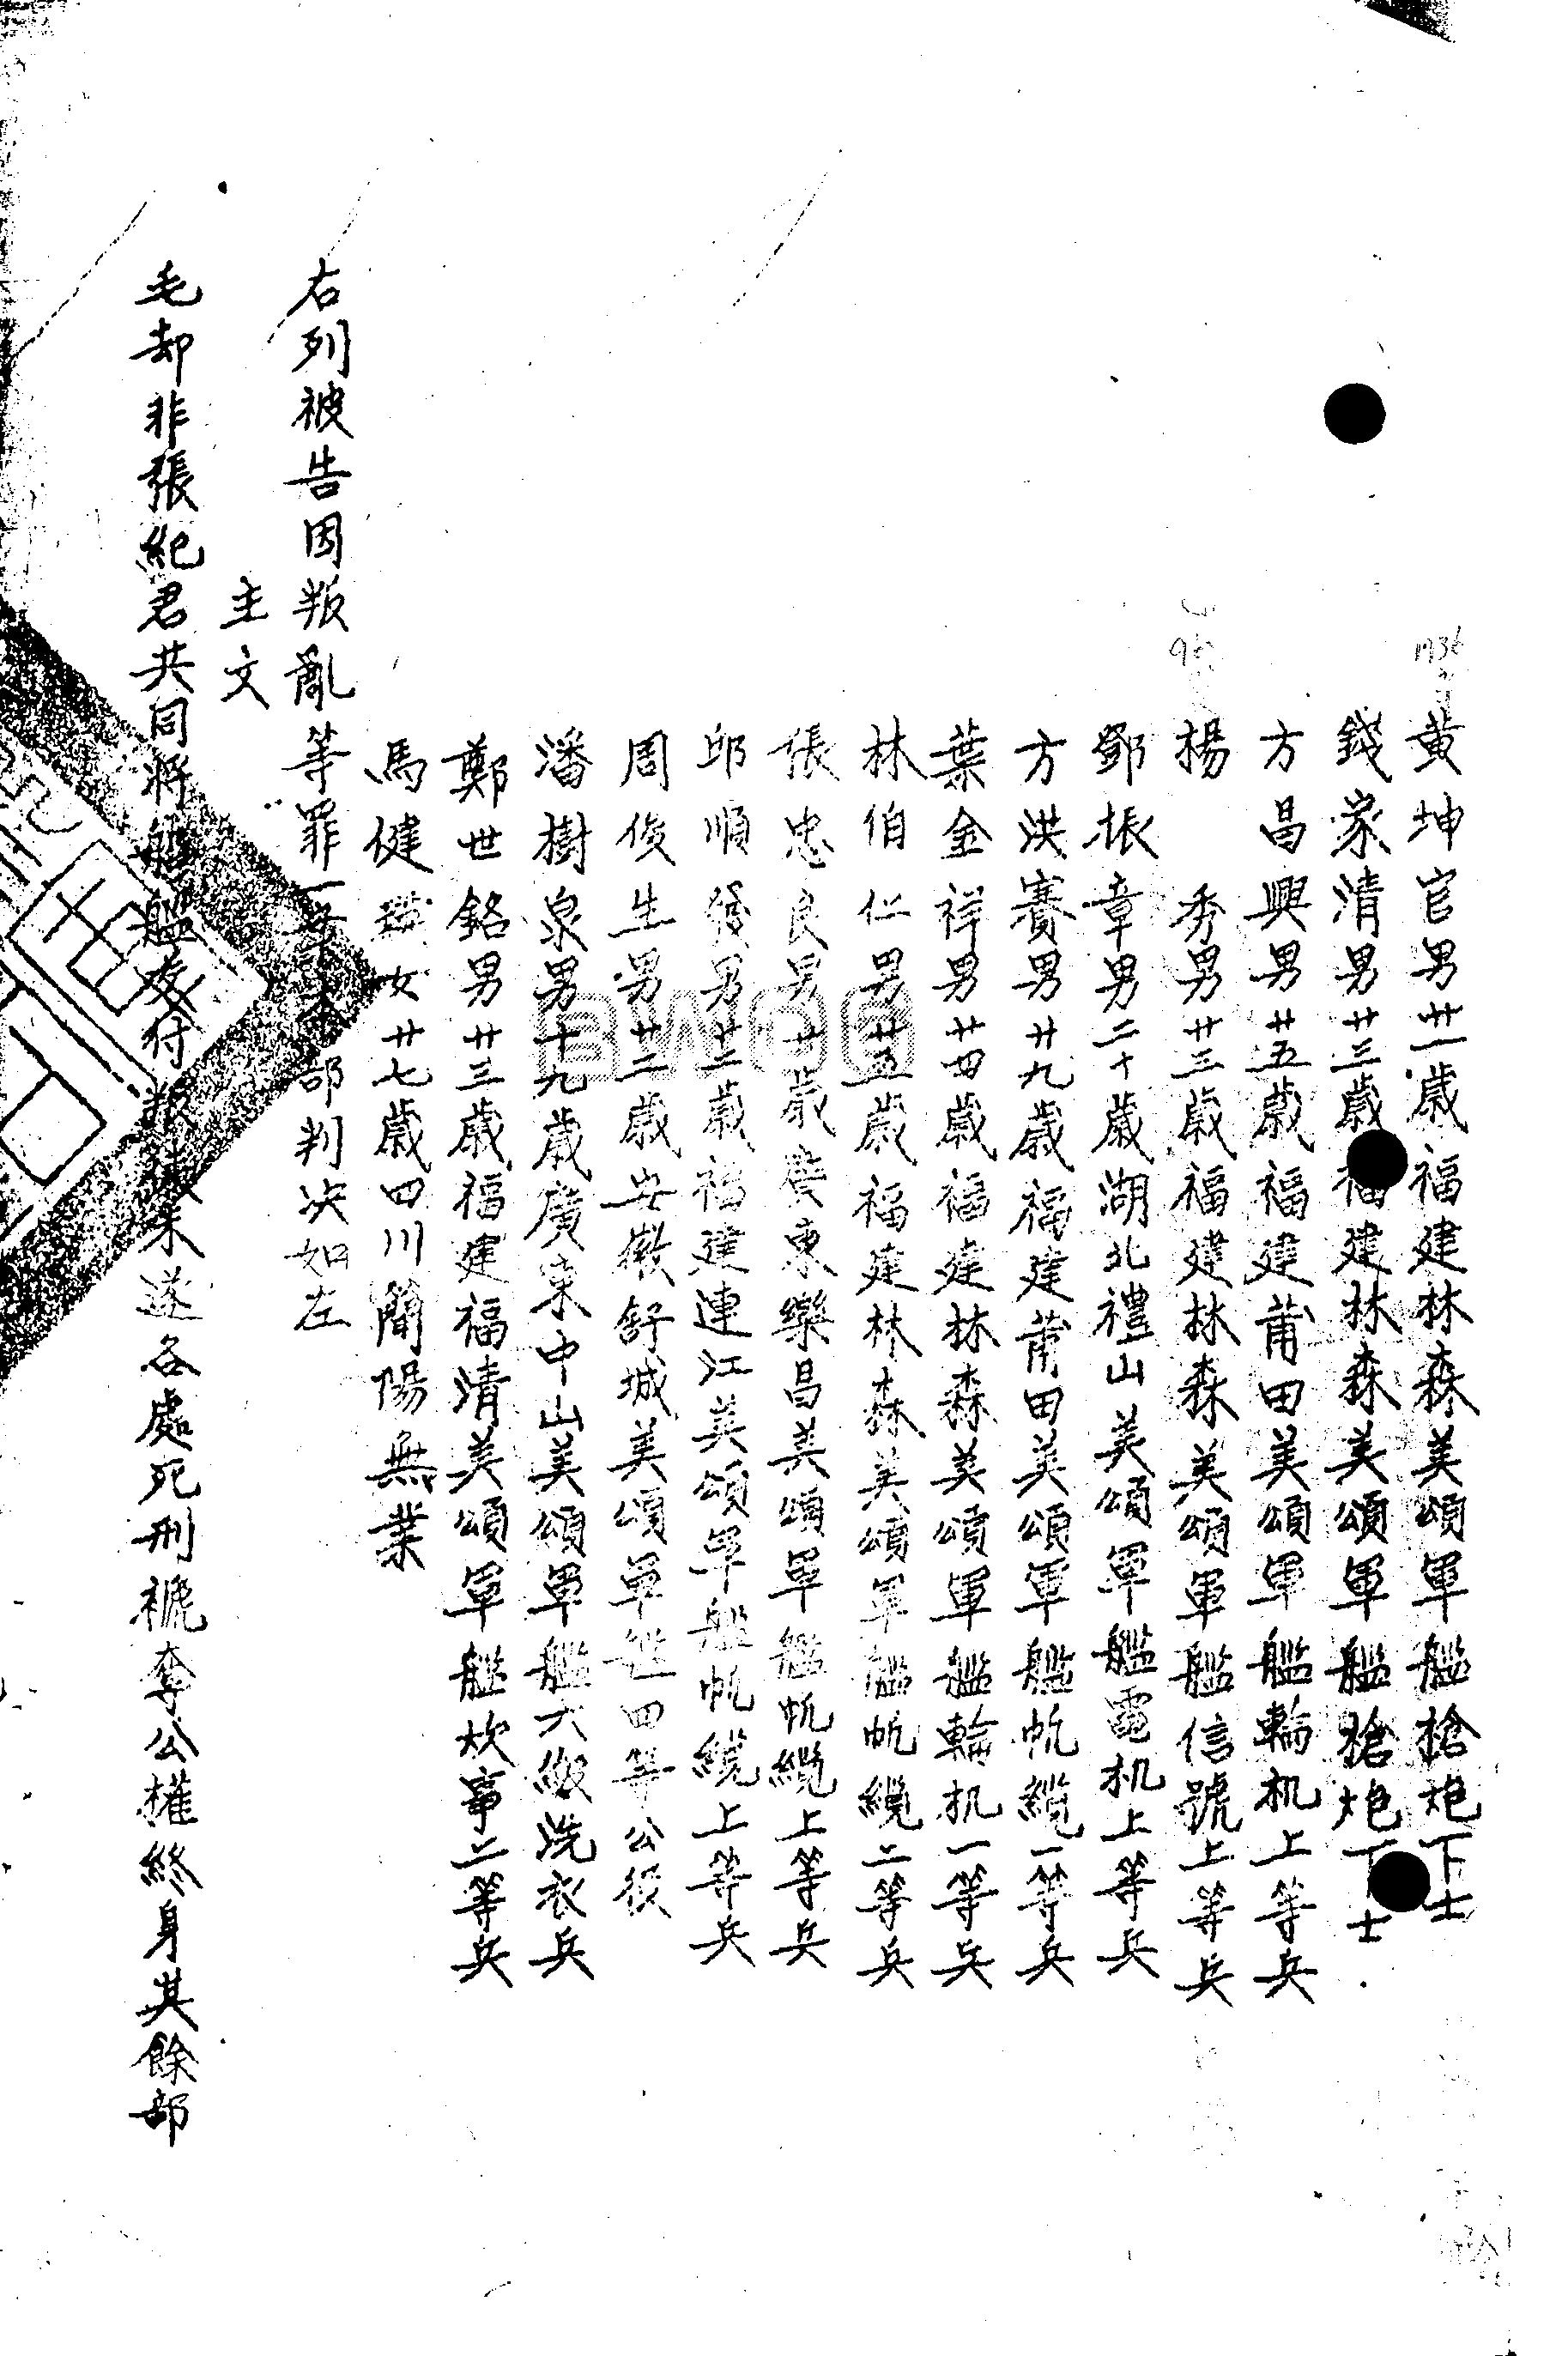 黄坤官男廿一歲福建林森美頌軍艦槍炮下士
錢家清男廿三歲福建林森美頌軍艦槍炮下士
方昌興男廿五歲福建莆田美頌軍艦輪机上等兵
楊秀男廿三歲福建林森美頌軍艦信號上等兵
鄧振章男二十歲湖北禮山美頌軍艦電机上等兵
方洪賽男廿九歲福建莆田美頌軍艦帆纜一等兵
葉金祥男廿四歲福建林森美頌軍艦輪机一等兵
林伯仁男廿五歲福建林森美頌軍艦帆纜二等兵
張忠良男廿歲廣東樂昌美頌軍艦帆纜上等兵
邱順俊男廿二歲福建連江美頌軍艦帆纜上等兵
周俊生男廿二歲安徽舒城美頌軍艦四等公役
潘樹泉男十九歲廣東中山美頌軍艦六級洗衣兵
鄭世銘男廿三歲福建福清美頌軍艦炊事二等兵
馬健女廿七歲四川簡陽無業
右列被告因叛亂等罪一案本部判决如左
主文
毛却非張紀君共同將船艦交付叛徒未遂各處死刑褫奪公權終身其餘部